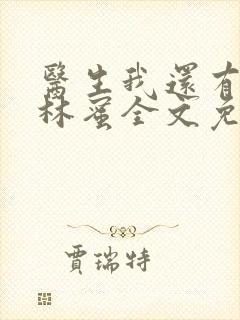 醫生我還有
林蜜全文免
賈瑞特